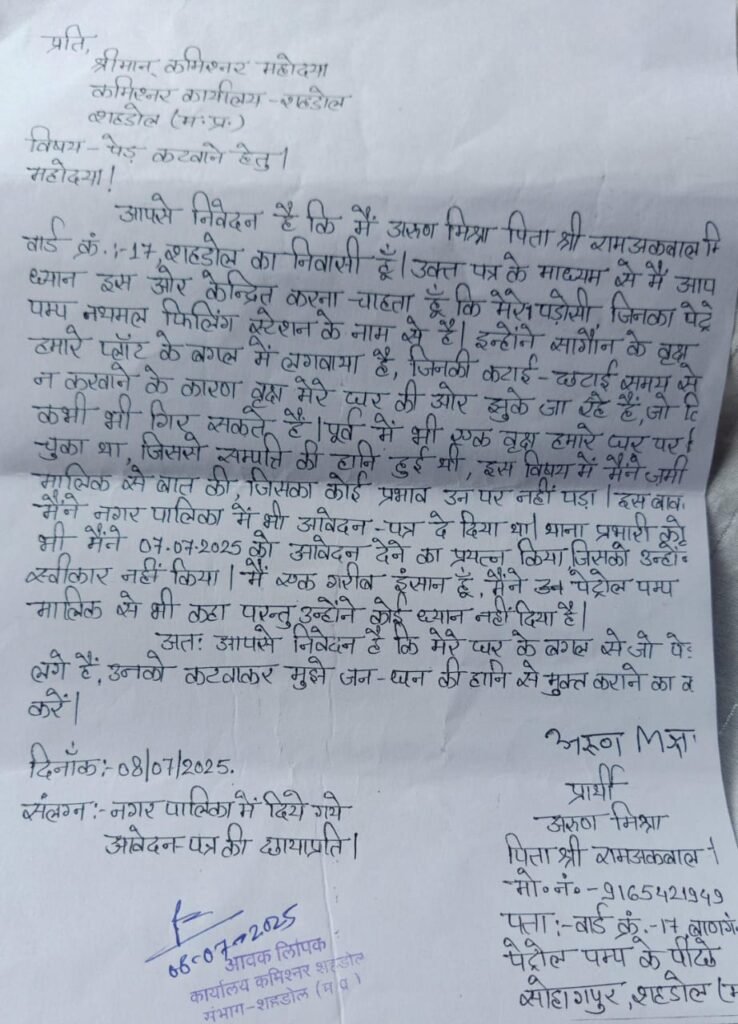 प्रति,
श्रीमान् कमिश्नर महोदया
कमिश्नर कार्यालय - शहडोल
शहडोल (म.प्र.)
विषय - पेड़ कटवाने हेतु।
महोदया!
आपसे निवेदन है कि मैं अरुण मिश्रा पिता श्री रामअकबाल मि
वार्ड क्रं.:-17, शहडोल का निवासी हूँ। उक्त पत्र के माध्यम से मैं आप
ध्यान इस ओर केन्द्रित करना चाहता हूँ कि मेरे पड़ोसी, जिनका पेट्रो
पम्प नथमल फिलिंग स्टेशन के नाम से है। इन्होंने सागौन के वृक्ष
हमारे प्लॉट के बगल में लगवाया है, जिनकी कटाई-छटाई समय से
न करवाने के कारण वृक्ष मेरे घर की ओर झुके जा रहे हैं, जो कि
कभी भी गिर सकते हैं। पूर्व में भी एक वृक्ष हमारे घर पर
चुका था, जिससे सम्पति की हानि हुई थी, इस विषय में मैंने जमी
मालिक से बात की, जिसका कोई प्रभाव उन पर नहीं पड़ा। इस बाब
मैंने नगर पालिका में भी आवेदन-पत्र दे दिया था। थाना प्रभारी को
भी मैंने 07.07.2025 को आवेदन देने का प्रयत्न किया जिसको उन्हों
स्वीकार नहीं किया। मैं एक गरीब इंसान हूँ, मैंने उन पेट्रोल पम्प
मालिक से भी कहा परन्तु उन्होंने कोई ध्यान नहीं दिया है।
अतः आपसे निवेदन है कि मेरे घर के बगल से जो पे
लगे हैं, उनको कटवाकर मुझे जन-धन की हानि से मुक्त कराने का क
करें।
दिनाँक:-08/07/2025.
संलग्न:- नगर पालिका में दिये गये
आवेदन-पत्र की छायाप्रति।
अरुण मिश्रा
प्रार्थी
अरुण मिश्रा
पिता श्री रामअकबाल
मो.नं.-9165421949
पता:- वार्ड क्रं.-17, बाणगं
पेट्रोल पम्प के पीछे
सोहागपुर, शहडोल (म
08-07-2025
आवक लिपिक
कार्यालय कमिश्नर शहडोल
संभाग-शहडोल (म.प्र.)